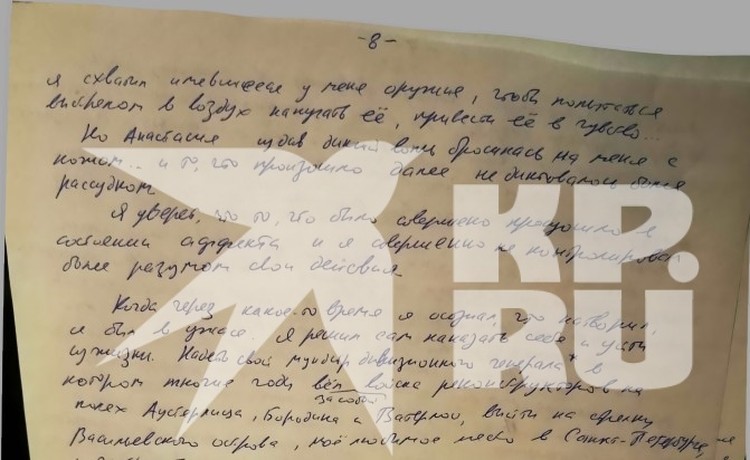 -8-
я схватил имевшееся у меня оружие, чтобы попытаться
выстрелом в воздух напугать её, привести её в чувство...
Но Анастасия издав дикий вопль бросилась на меня с
ножом... и то, что произошло далее не диктовалось более
рассудком
Я уверен, что то, что было совершено произошло в
состоянии аффекта и я совершенно не контролировал
более разумом свои действия
Когда через какое-то время я осознал, что натворил,
я был в ужасе. Я решил сам наказать себя и уйти
из жизни. Надеть свой мундир дивизионного генерала* в
котором многие годы вёл за собой войска реконструкторов на
полях Аустерлица, Бородина и Ватерлоо, выйти на стрелку
Васильевского острова, моё любимое место в Санкт-Петербурге,
KP.RU